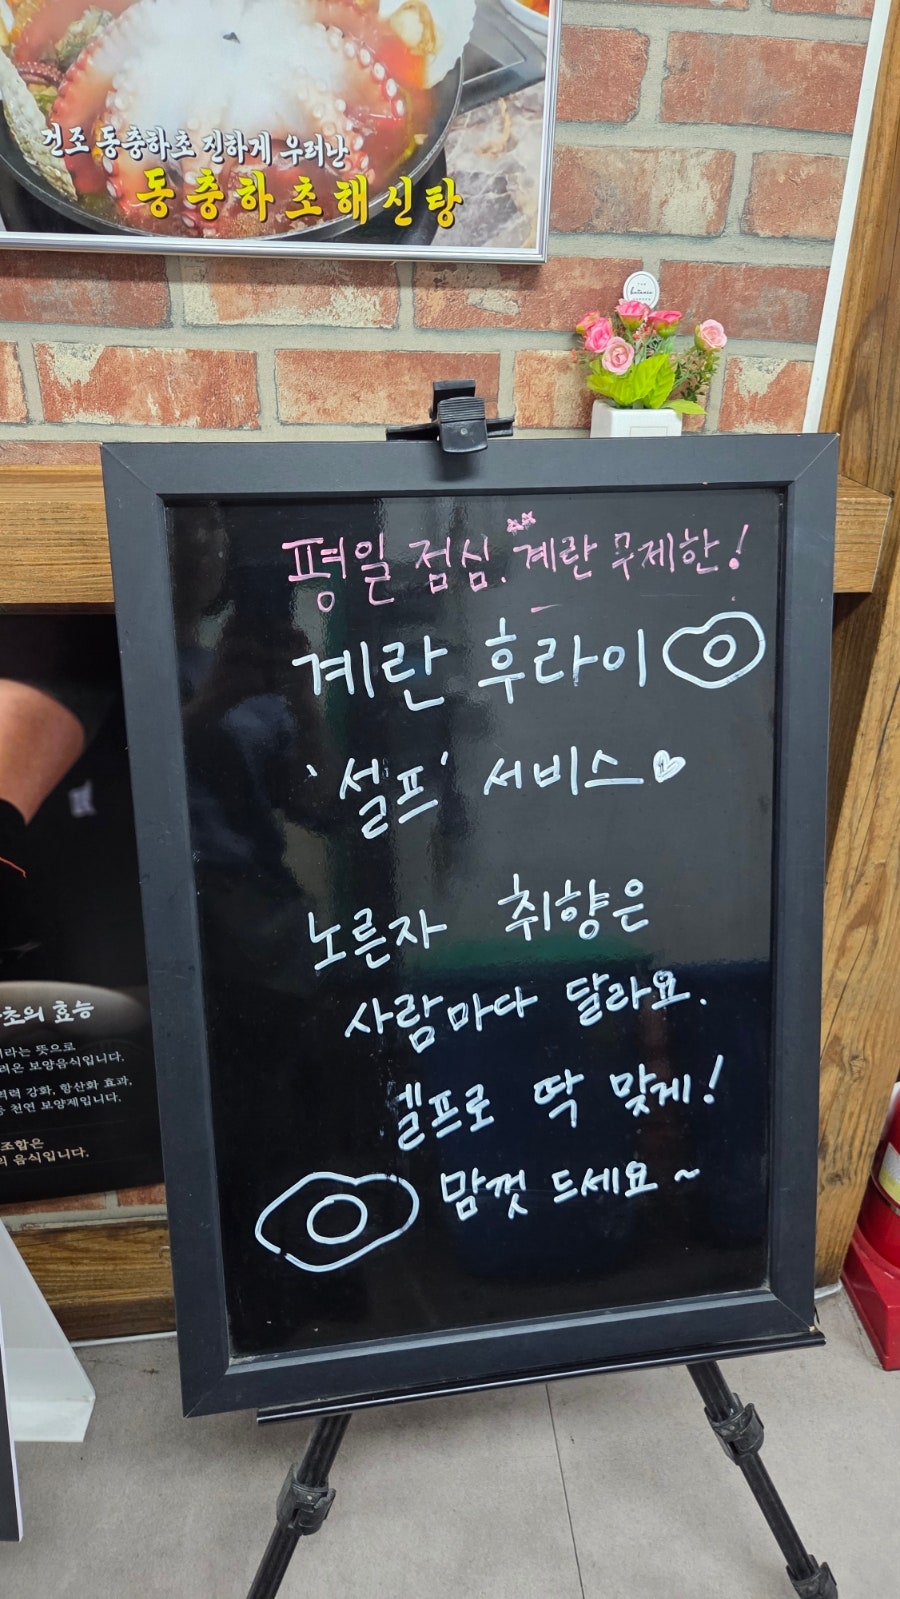 건조 동충하초 진하게 우려난
동충하초해신탕
평일 점심. 계란 무제한!
계란 후라이
'셀프' 서비스
노른자 취향은
사람마다 달라요.
셀프로 딱 맞게!
맘껏 드세요~
초의 효능
이라는 뜻으로
려온 보양음식입니다.
력 강화, 항산화 효과,
천연 보양제입니다.
조합은
의 음식입니다.